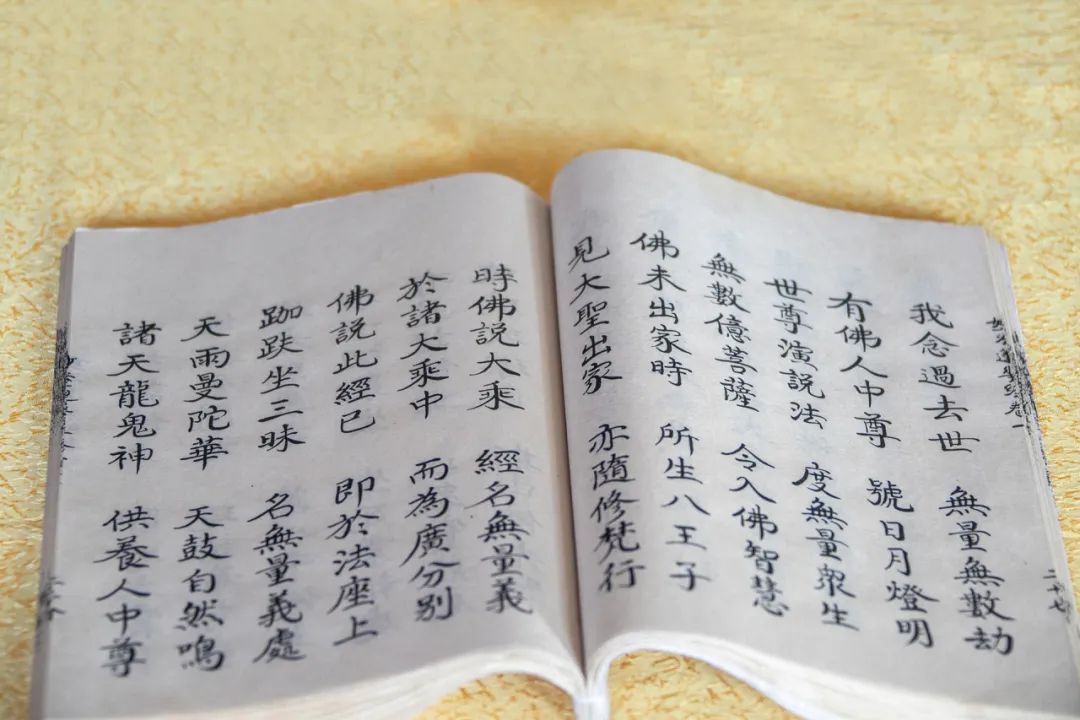 我念過去世 無量無數劫
有佛人中尊 號日月燈明
世尊演説法 度無量眾生
無數億菩薩 令入佛智慧
佛未出家時 所生八王子
見大聖出家 亦隨修梵行
時佛説大乘 經名無量義
於諸大乘中 而為廣分別
佛説此經已 即於法座上
跏趺坐三昧 名無量義處
天雨曼陀華 天鼓自然鳴
諸天龍鬼神 供養人中尊